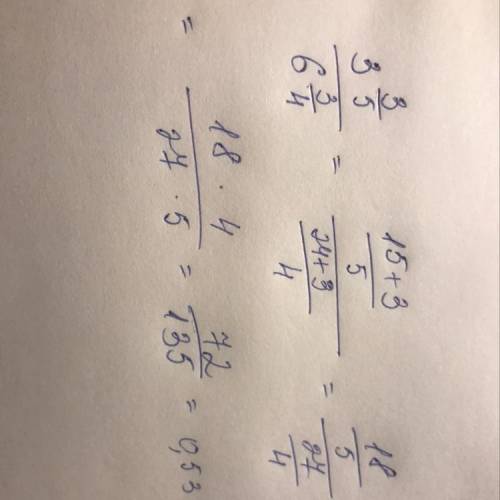 3 3/5 / 6 3/4 = (15+3)/5 / (24+3)/4 = 18/5 / 27/4
= 18 · 4 / 27 · 5 = 72/135 = 0,53